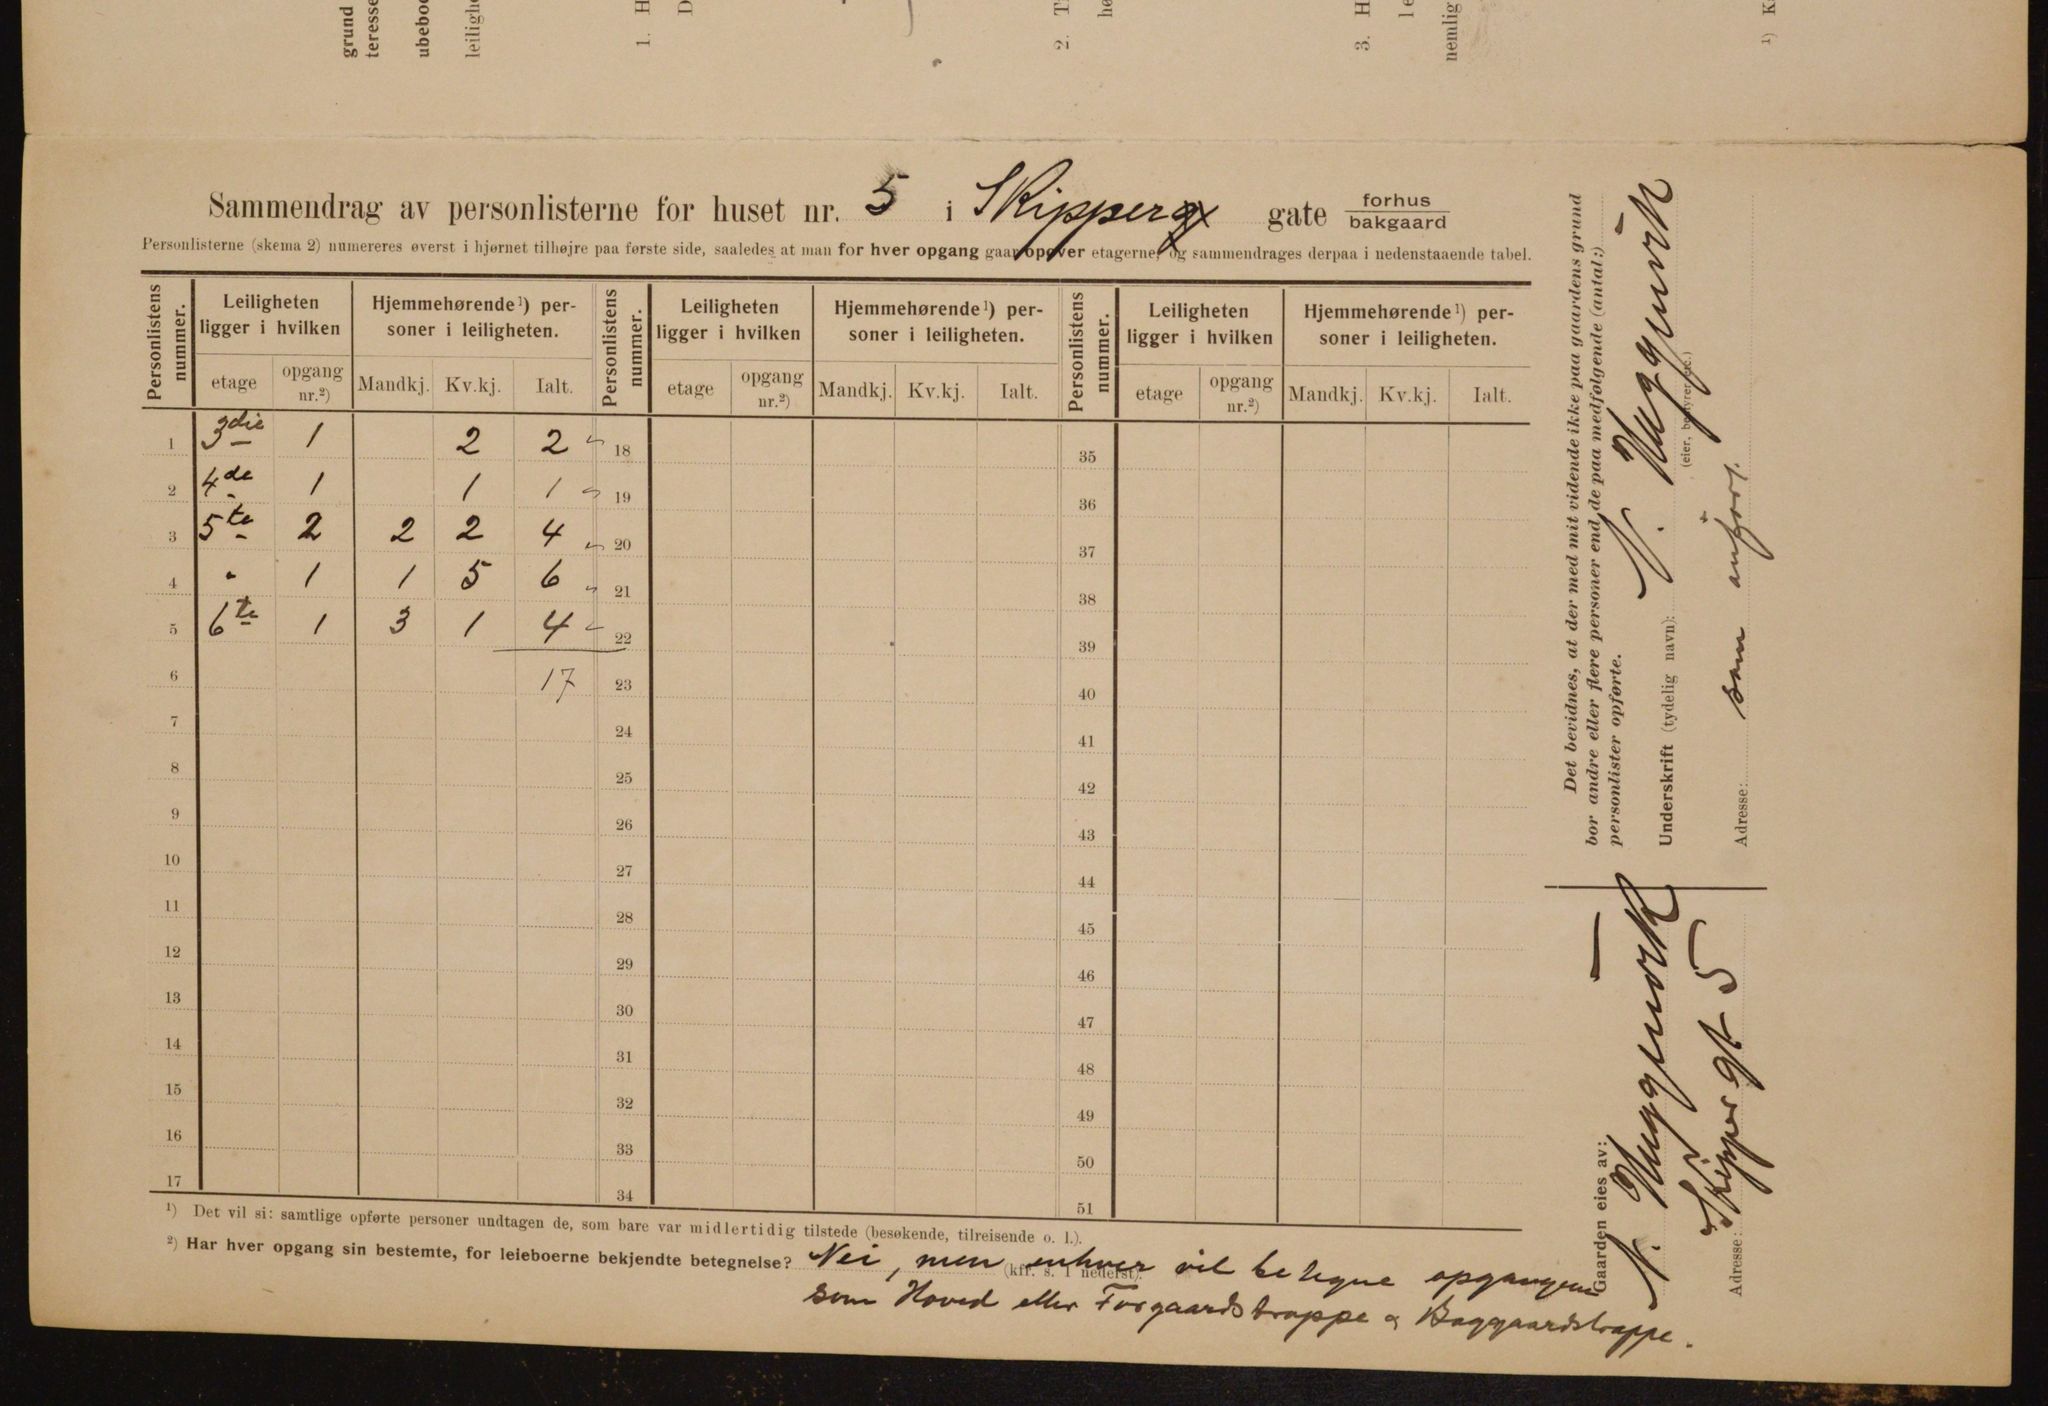 grund
teresse
ubeboe
leiligh
1. H
D
2. T
hø
3. H
le
nemlig
¹) K
Sammendrag av personlisterne for huset nr. 5 i Skipperg gate forhus bakgaard
Personlisterne (skema 2) numereres øverst i hjørnet tilhøjre paa første side, saaledes at man for hver opgang gaar opover etagerne, og sammendrages derpaa i nedenstaaende tabel.
Personlistens nummer. Leiligheten ligger i hvilken Hjemmehørende¹) personer i leiligheten. Personlistens nummer. Leiligheten ligger i hvilken Hjemmehørende¹) personer i leiligheten. Personlistens nummer. Leiligheten ligger i hvilken Hjemmehørende¹) personer i leiligheten.
etage opgang nr.²) Mandkj. Kv.kj. Ialt. etage opgang nr.²) Mandkj. Kv.kj. Ialt. etage opgang nr.²) Mandkj. Kv.kj. Ialt.
1 3die 1 2 2 18 35
2 4de 1 1 1 19 36
3 5te 2 2 2 4 20 37
4 " 1 1 5 6 21 38
5 6te 1 3 1 4 22 39
6 17 23 40
7 24 41
8 25 42
9 26 43
10 27 44
11 28 45
12 29 46
13 30 47
14 31 48
15 32 49
16 33 50
17 34 51
¹) Det vil si: samtlige opførte personer undtagen de, som bare var midlertidig tilstede (besøkende, tilreisende o. l.).
²) Har hver opgang sin bestemte, for leieboerne bekjendte betegnelse? Nei, men enhver vil betegne opgangen
(kfr. s. 1 nederst).
som Hoved eller Forgaardstrappe & Baggaardstrappe.
Det bevidnes, at der med mit vidende ikke paa gaardens grund
bor andre eller flere personer end de paa medfølgende (antal:)
personlister opførte.
Underskrift (tydelig navn): N. Huggenvik
(eier, bestyrer etc.)
Adresse: som anført.
Gaarden eies av: N. Huggenvik
Adresse: Skippergt 5